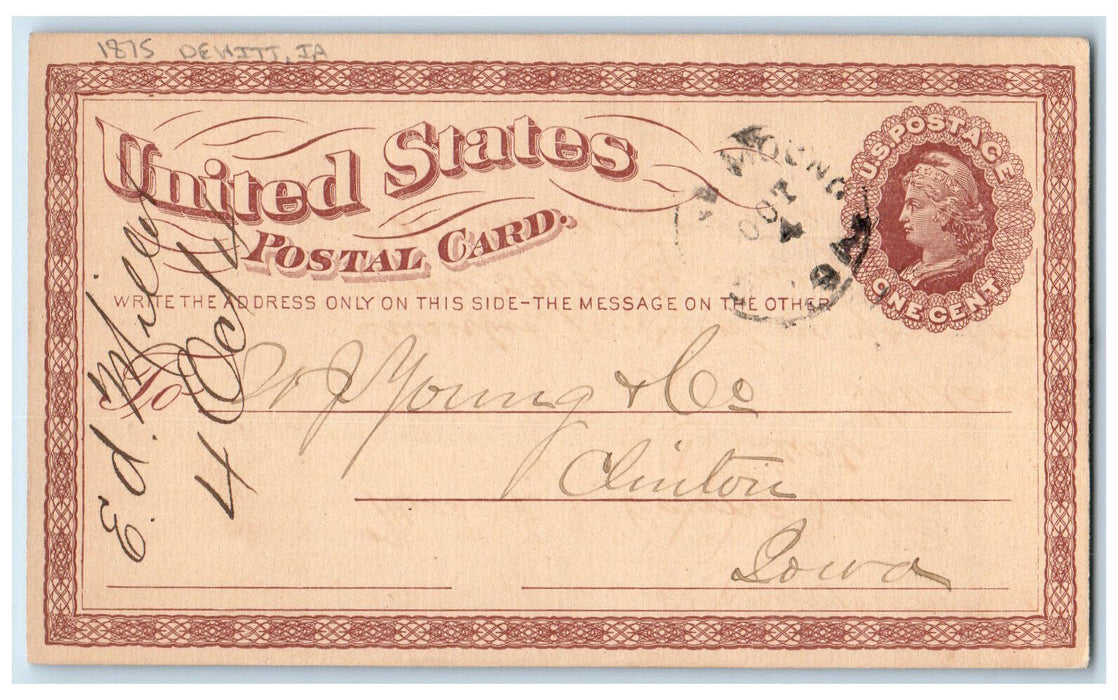 1875 DEWITT, IA
United States
POSTAL CARD.
WRITE THE ADDRESS ONLY ON THIS SIDE-THE MESSAGE ON THE OTHER
U.S. POSTAGE
ONE CENT
OCT
4
To W J Young & Co
Clinton
Iowa
E. d. Miller
4 Oct